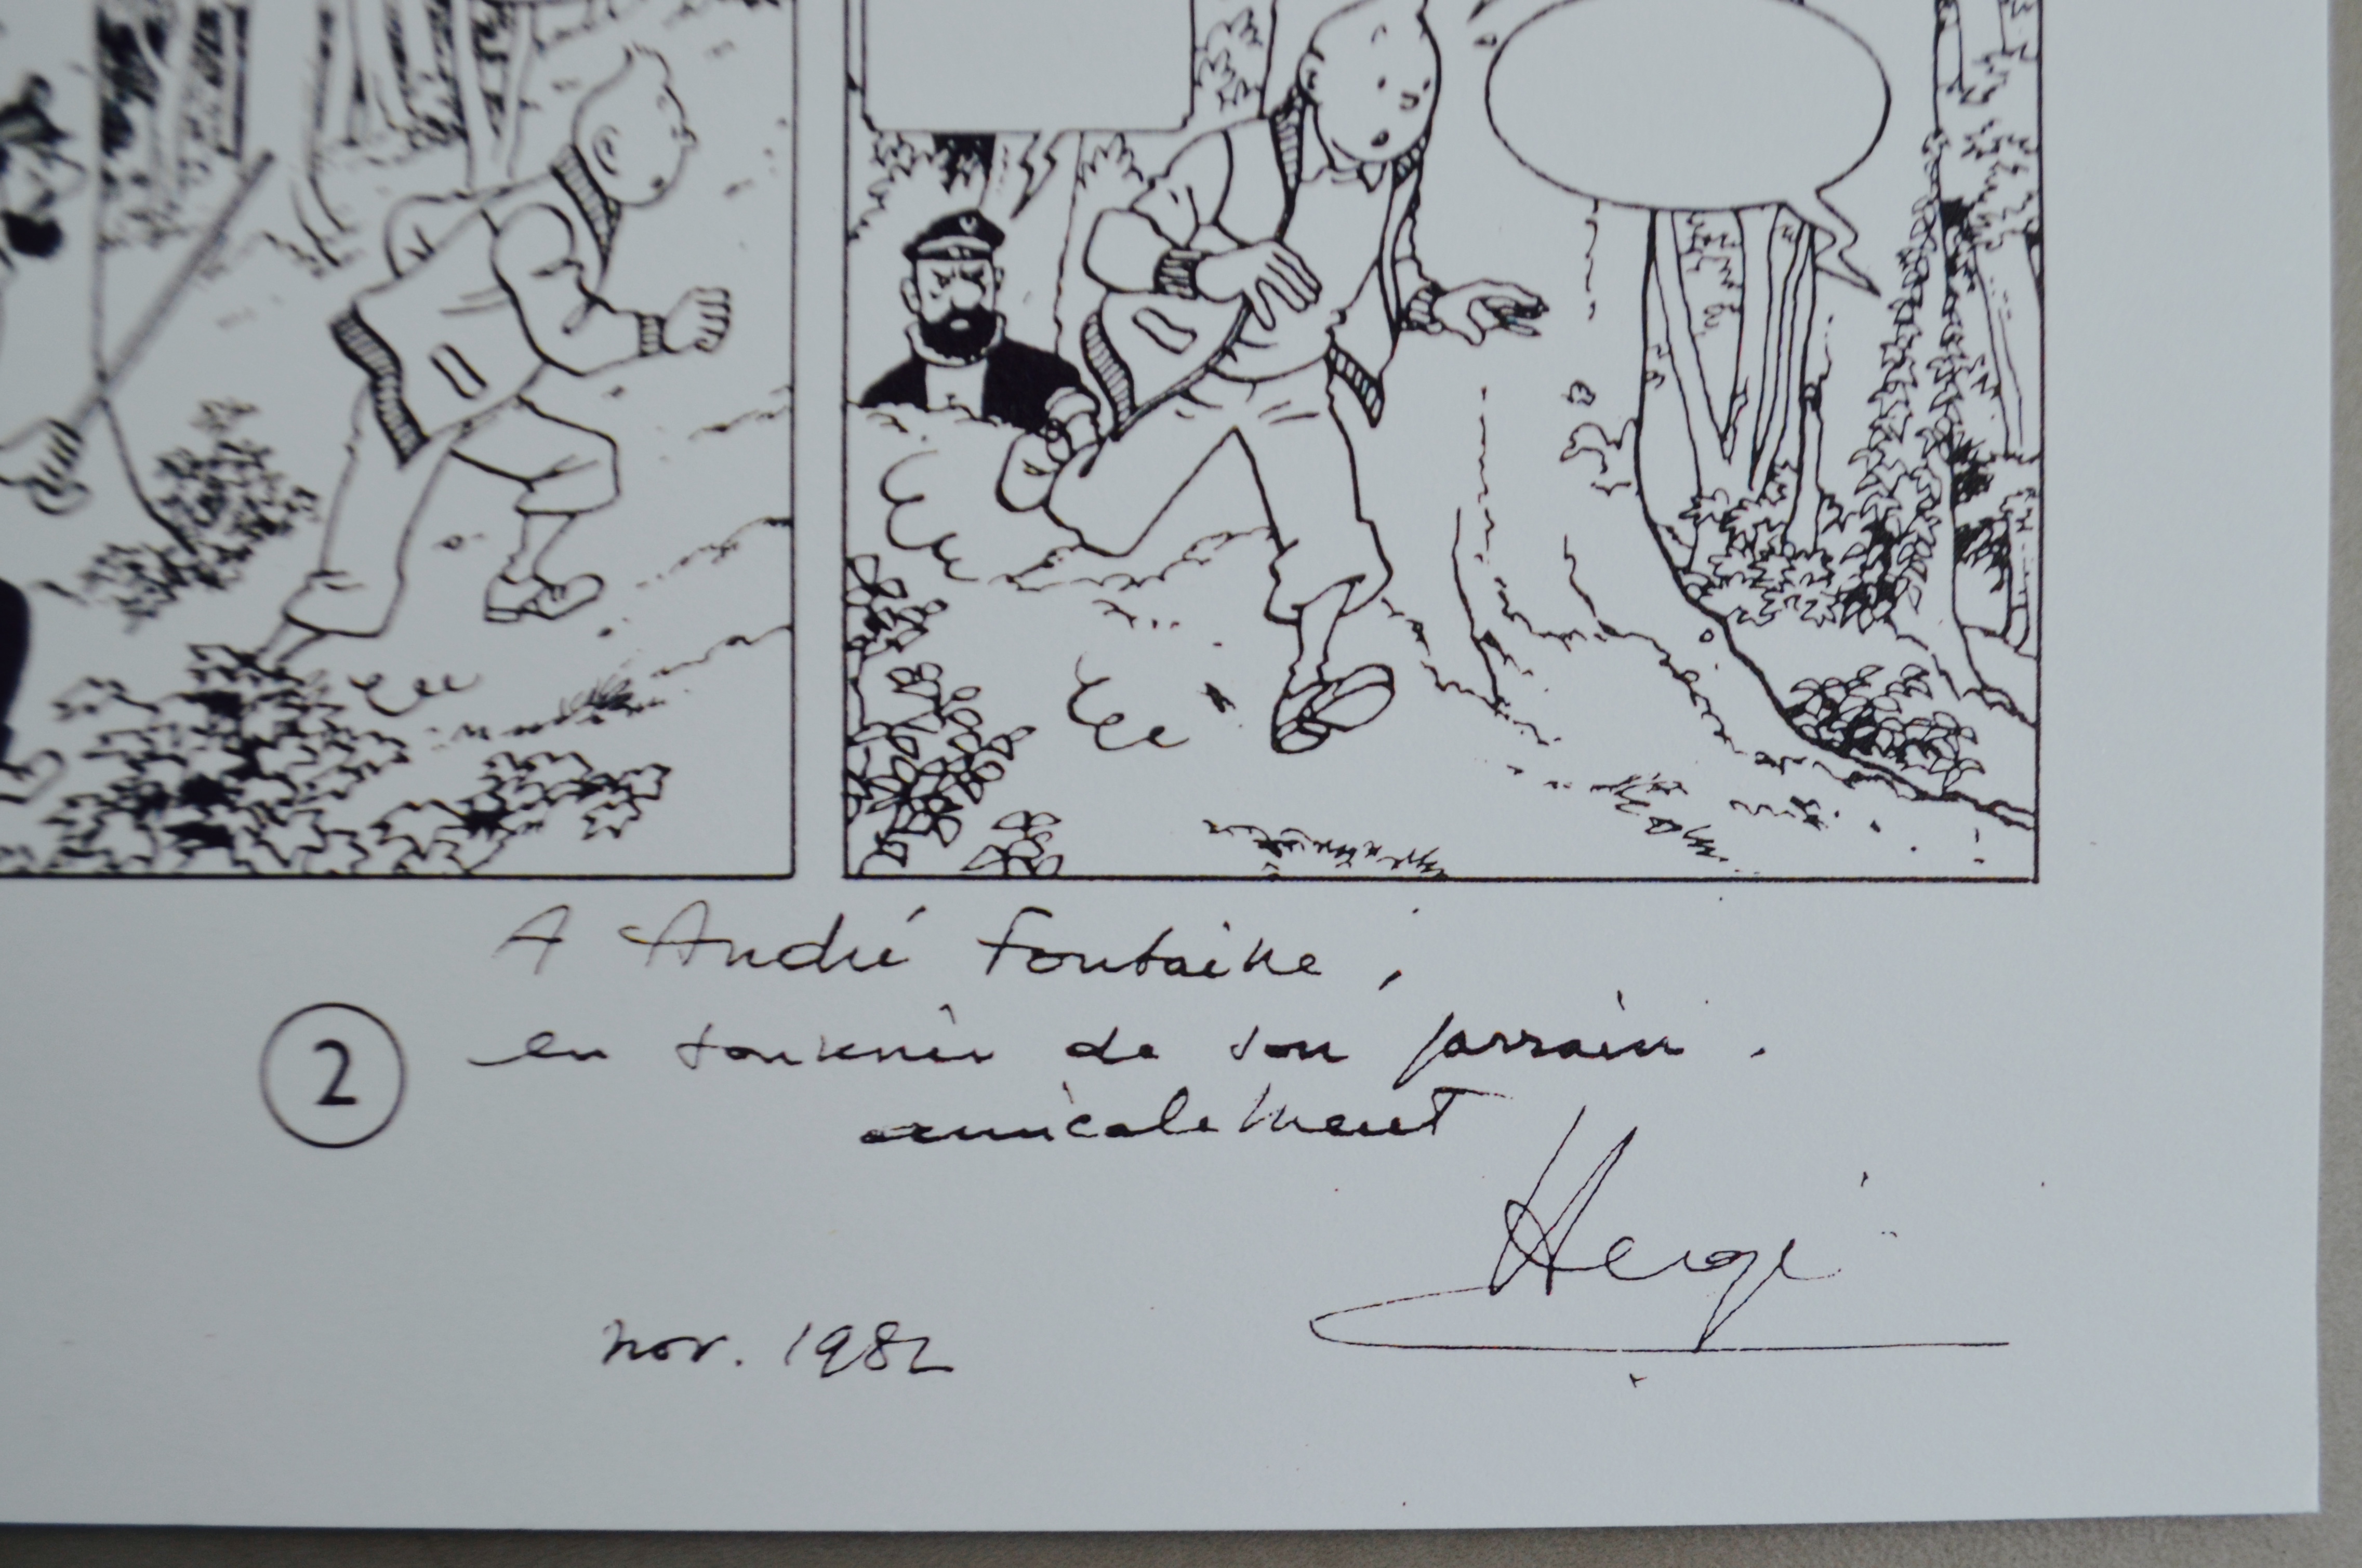 A André Fontaine,
en souvenir de son parrain.
amicalement
Hergé
nov. 1982
2